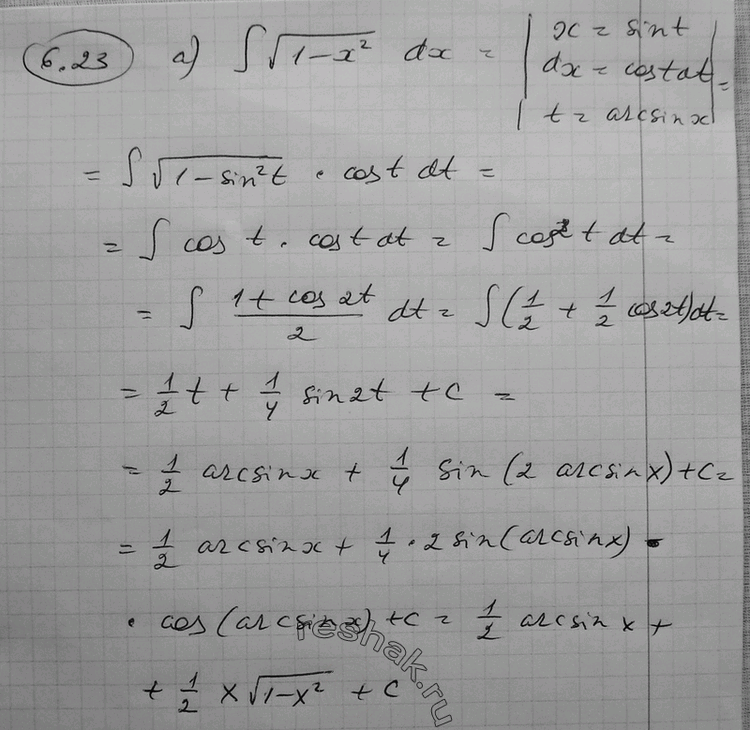 6.23 a) ∫√(1-x²) dx = | x = sin t
dx = cos t dt =
t = arcsin x |
= ∫√(1-sin²t) · cos t dt =
= ∫ cos t · cos t dt = ∫ cos² t dt =
= ∫ (1+cos 2t)/2 dt = ∫(1/2 + 1/2 cos 2t)dt =
= 1/2 t + 1/4 sin 2t + C =
= 1/2 arcsin x + 1/4 sin (2 arcsin x) + C =
= 1/2 arcsin x + 1/4 · 2 sin(arcsin x) ·
· cos (arcsin x) + C = 1/2 arcsin x +
+ 1/2 x √(1-x²) + C
reshak.ru